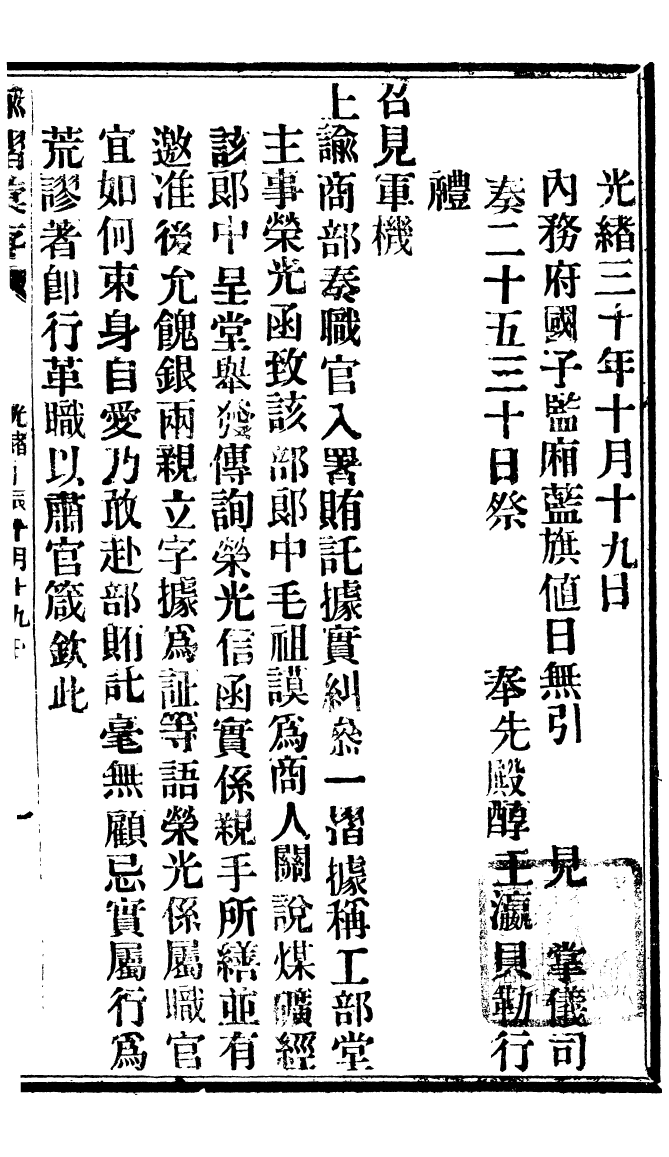 光緒三十年十月十九日
內務府國子監廂藍旗值日無引　見　掌儀司
奏二十五三十日祭　奉先殿醇王瀛貝勒行
禮
召見軍機
上諭商部奏職官入署賄託據實糾叅一摺據稱工部堂
主事榮光函致該部郎中毛祖謨為商人關說煤礦經
該郎中呈堂舉發傳詢榮光信函實係親手所繕並有
邀准後允餽銀兩親立字據為証等語榮光係屬職官
宜如何束身自愛乃敢赴部賄託毫無顧忌實屬行為
荒謬著即行革職以肅官箴欽此
光緒　辰十月十九日　一